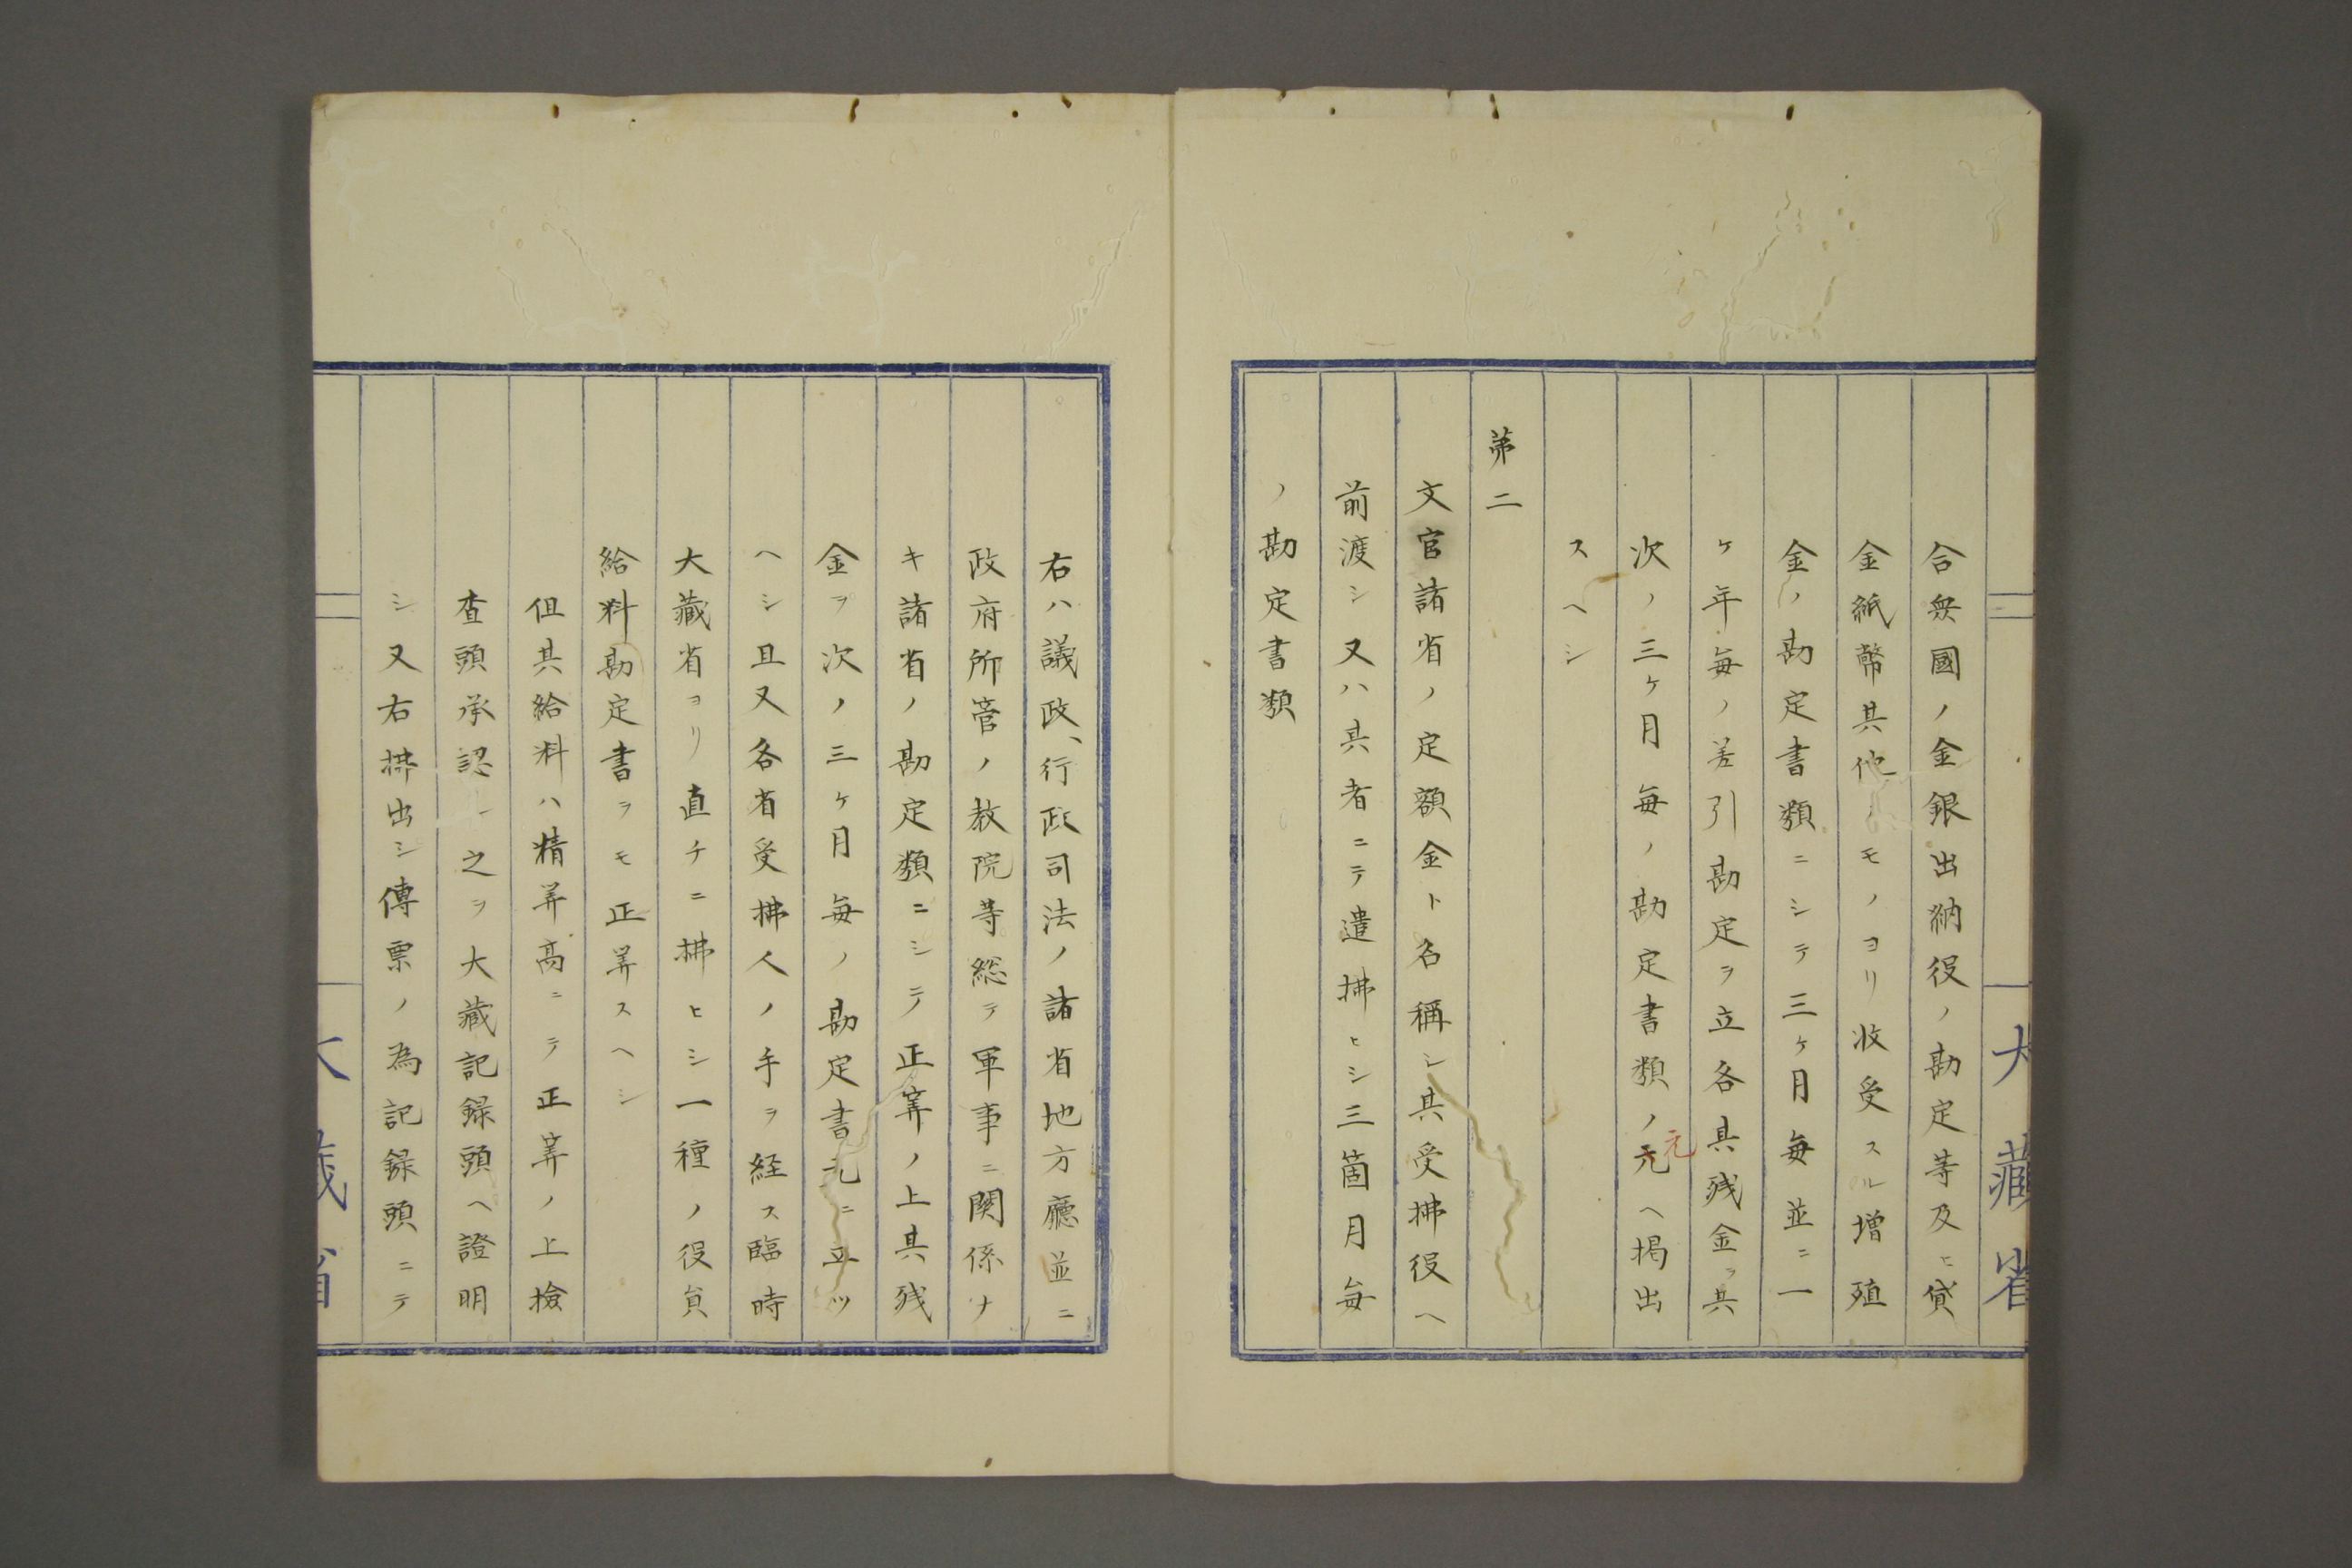 合衆國ノ金銀出納役ノ勘定等及ヒ貸
金紙幣其他ノモノヨリ收受スル増殖
金ノ勘定書類ニシテ三ケ月毎並ニ一
ケ年毎ノ差引勘定ヲ立各其残金ヲ其
次ノ三ケ月毎ノ勘定書類ノ元ヘ掲出
元
スヘシ
第二
文官諸省ノ定額金ト名稱シ其受拂役ヘ
前渡シ又ハ其者ニテ遣拂ヒシ三箇月毎
ノ勘定書類
大藏省
右ハ議政、行政司法ノ諸省地方廳並ニ
政府所管ノ教院等総テ軍事ニ関係ナ
キ諸省ノ勘定類ニシテ正筭ノ上其残
金ヲ次ノ三ケ月毎ノ勘定書元ニ立ツ
ヘシ且又各省受拂人ノ手ヲ経ス臨時
大藏省ヨリ直チニ拂ヒシ一種ノ役員
給料勘定書ヲモ正筭スヘシ
但其給料ハ精筭高ニテ正筭ノ上檢
査頭承認シ之ヲ大藏記録頭ヘ證明
シ又右拂出シ傳票ノ為記録頭ニテ
大藏省